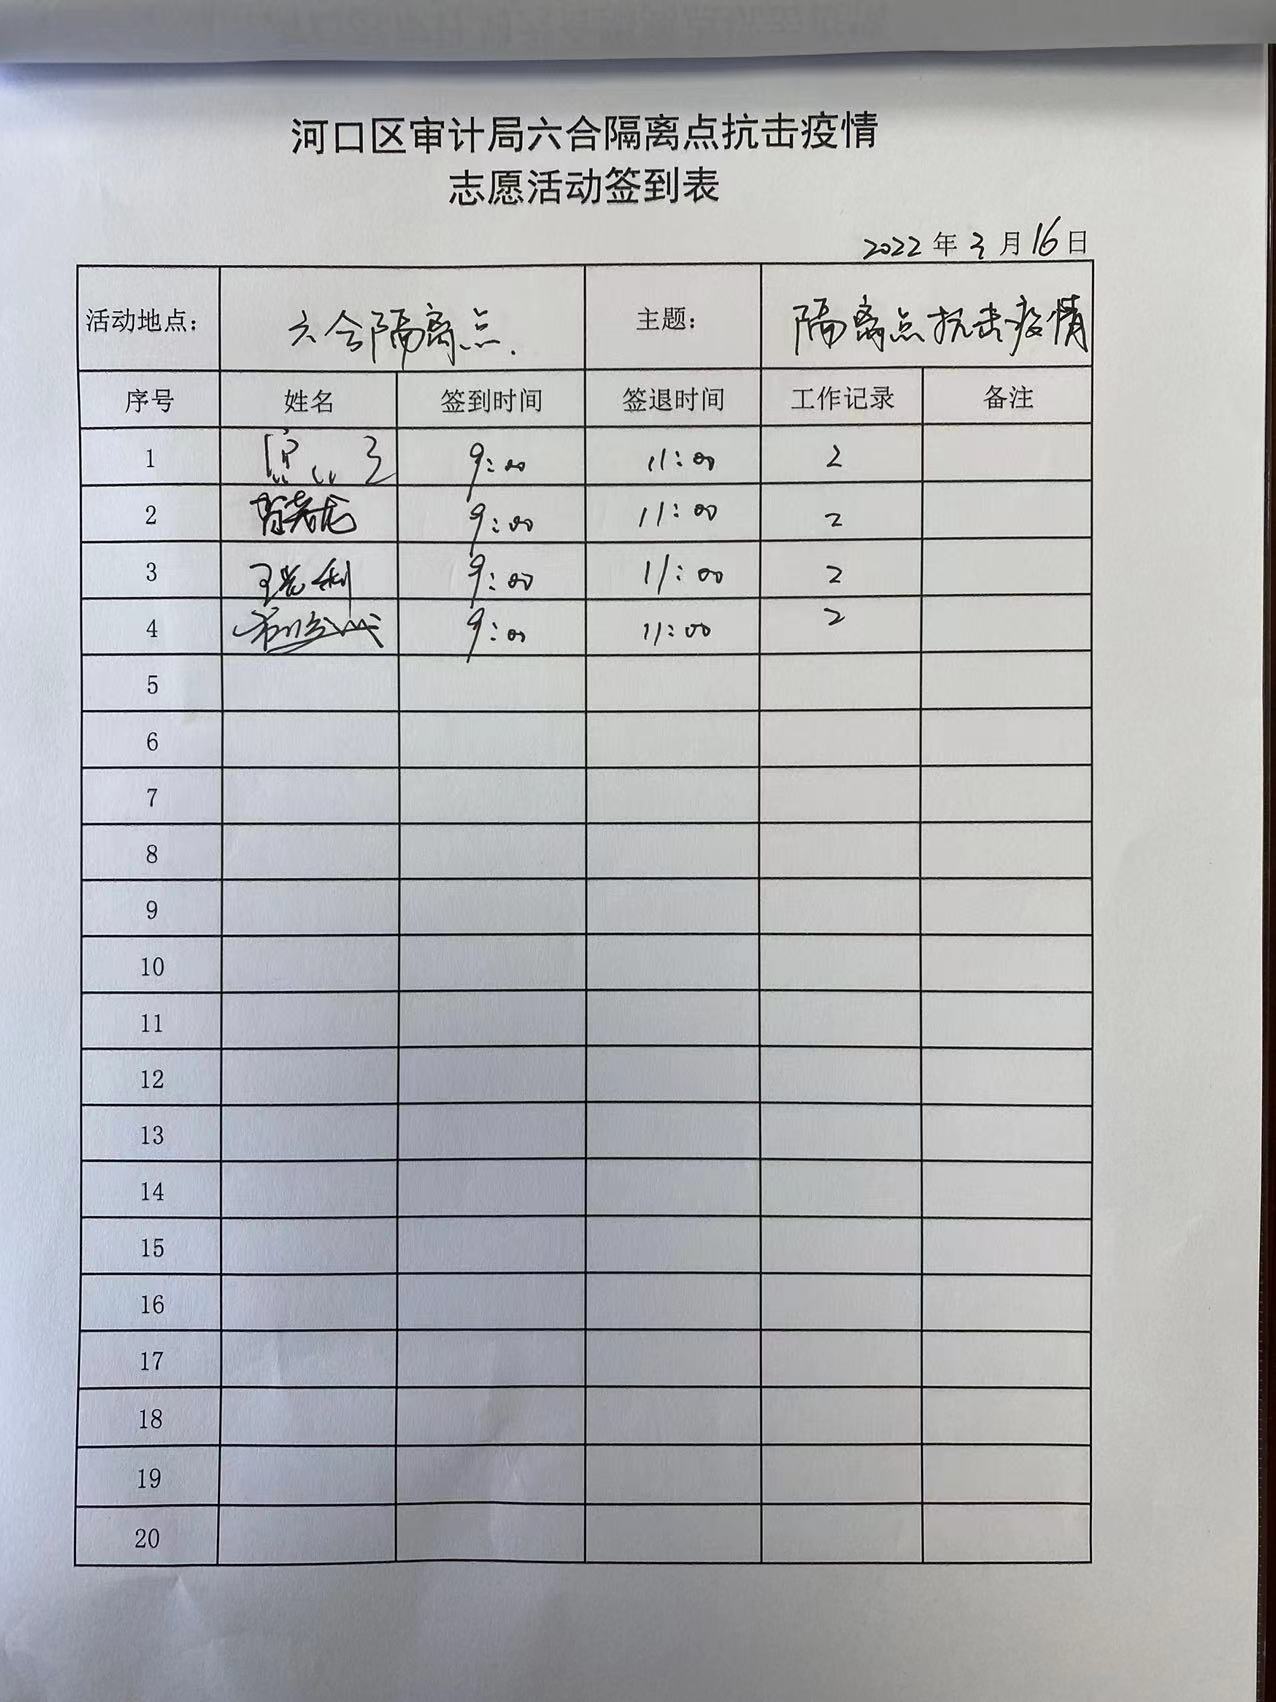 河口区审计局六合隔离点抗击疫情
志愿活动签到表
2022年3月16日
活动地点: 六合隔离点. 主题: 隔离点抗击疫情
序号 姓名 签到时间 签退时间 工作记录 备注
1 9:00 11:00 2
2 9:00 11:00 2
3 9:00 11:00 2
4 9:00 11:00 2
5
6
7
8
9
10
11
12
13
14
15
16
17
18
19
20